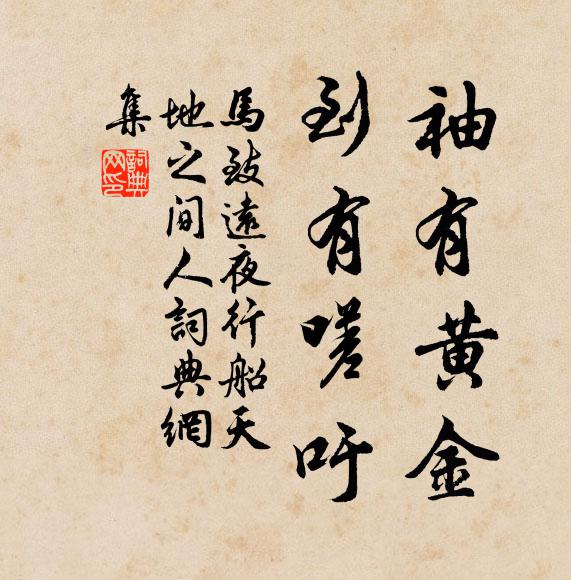 袖有黄金
到有嗟吁
馬致遠夜行船天
地之间人詞典網
集
詞典
网印